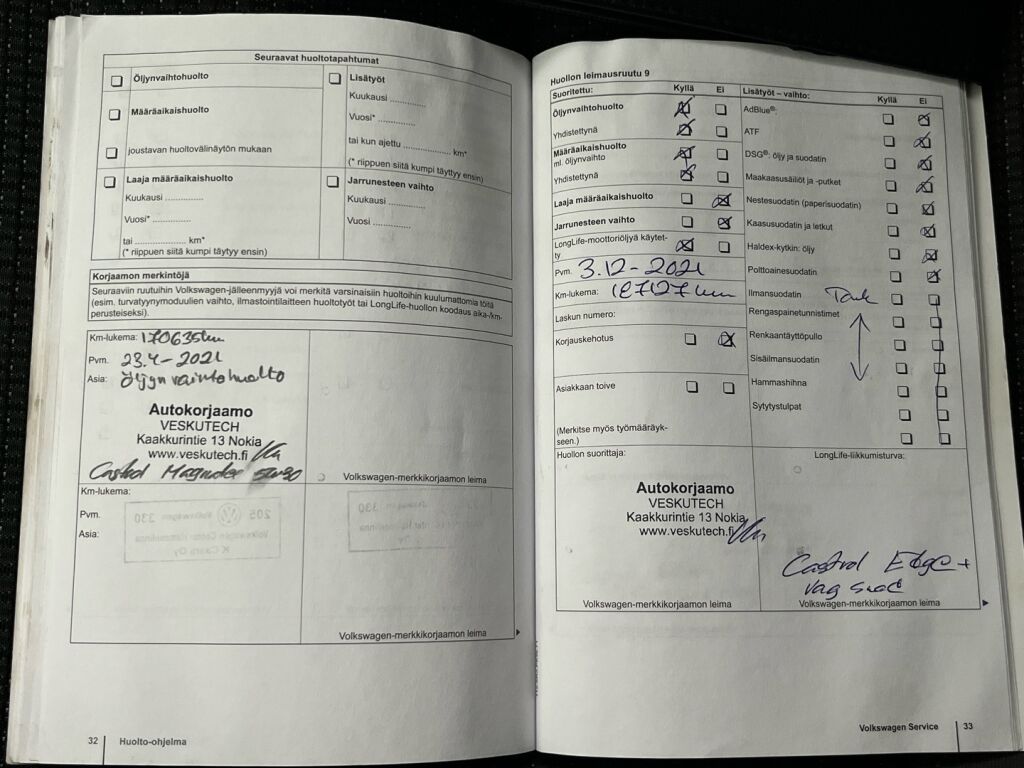 Seuraavat huoltotapahtumat
Öljynvaihtohuolto
Määräaikaishuolto
joustavan huoltovälinäytön mukaan
Lisätyöt
Kuukausi ..............
Vuosi* ..............
tai kun ajettu .................. km*
(* riippuen siitä kumpi täyttyy ensin)
Laaja määräaikaishuolto
Kuukausi ..............
Vuosi* ..............
tai .................. km*
(* riippuen siitä kumpi täytyy ensin)
Jarrunesteen vaihto
Kuukausi ..............
Vuosi ..............
Korjaamon merkintöjä
Seuraaviin ruutuihin Volkswagen-jälleenmyyjä voi merkitä varsinaisiin huoltoihin kuulumattomia töitä
(esim. turvatyynymoduulien vaihto, ilmastointilaitteen huoltotyöt tai LongLife-huollon koodaus aika-/km-
perusteiseksi).
Km-lukema: 170635km
Pvm. 23.4-2021
Asia: Öljyn vaihtohuolto
Autokorjaamo
VESKUTECH
Kaakkurintie 13 Nokia
www.veskutech.fi
Castrol Magnatec 5w30
Volkswagen-merkkikorjaamon leima
Km-lukema:
Pvm.
Asia:
Volkswagen-merkkikorjaamon leima
32 Huolto-ohjelma
Huollon leimausruutu 9
Suoritettu: Kyllä Ei
Öljynvaihtohuolto
Yhdistettynä
Määräaikaishuolto
ml. öljynvaihto
Yhdistettynä
Laaja määräaikaishuolto
Jarrunesteen vaihto
LongLife-moottoriöljyä käytet-
ty
Pvm. 3.12-2021
Km-lukema: 187127km
Laskun numero:
Korjauskehotus
Asiakkaan toive
(Merkitse myös työmääräyk-
seen.)
Lisätyöt – vaihto: Kyllä Ei
AdBlue®:
ATF
DSG®: öljy ja suodatin
Maakaasusäiliöt ja -putket
Nestesuodatin (paperisuodatin)
Kaasusuodatin ja letkut
Haldex-kytkin: öljy
Polttoainesuodatin
Ilmansuodatin Tark
Rengaspainetunnistimet
Renkaantäyttöpullo
Sisäilmansuodatin
Hammashihna
Sytytystulpat
Huollon suorittaja:
Autokorjaamo
VESKUTECH
Kaakkurintie 13 Nokia
www.veskutech.fi
Volkswagen-merkkikorjaamon leima
LongLife-liikkumisturva:
Castrol Edge +
Vag suod
Volkswagen-merkkikorjaamon leima
Volkswagen Service 33